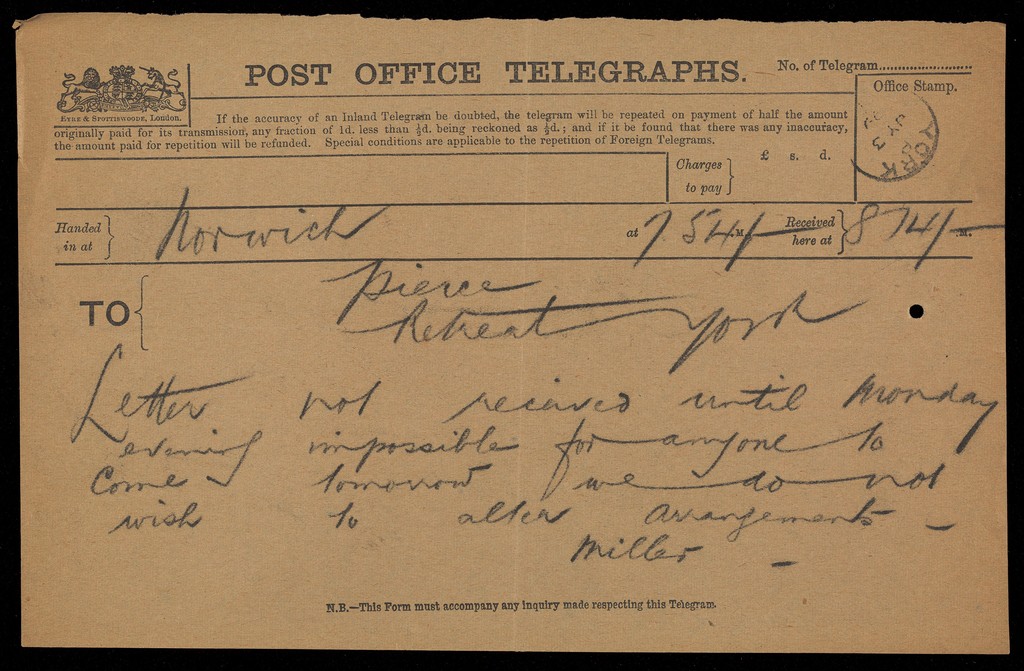 POST OFFICE TELEGRAPHS.
No. of Telegram
Office Stamp.
EYRE & SPOTTISWOODE, London.
If the accuracy of an Inland Telegram be doubted, the telegram will be repeated on payment of half the amount
originally paid for its transmission, any fraction of 1d. less than ½d. being reckoned as ½d.; and if it be found that there was any inaccuracy,
the amount paid for repetition will be refunded. Special conditions are applicable to the repetition of Foreign Telegrams.
YORK
JY 3
Charges to pay } £ s. d.
Handed in at } Norwich at 7 54/- M. Received here at } 8 14/- M.
TO { Pierce
Retreat York
Letter not recieved until Monday
evening impossible for anyone to
Come tomorrow we do not
wish to alter arrangements -
Miller -
N.B.—This Form must accompany any inquiry made respecting this Telegram.